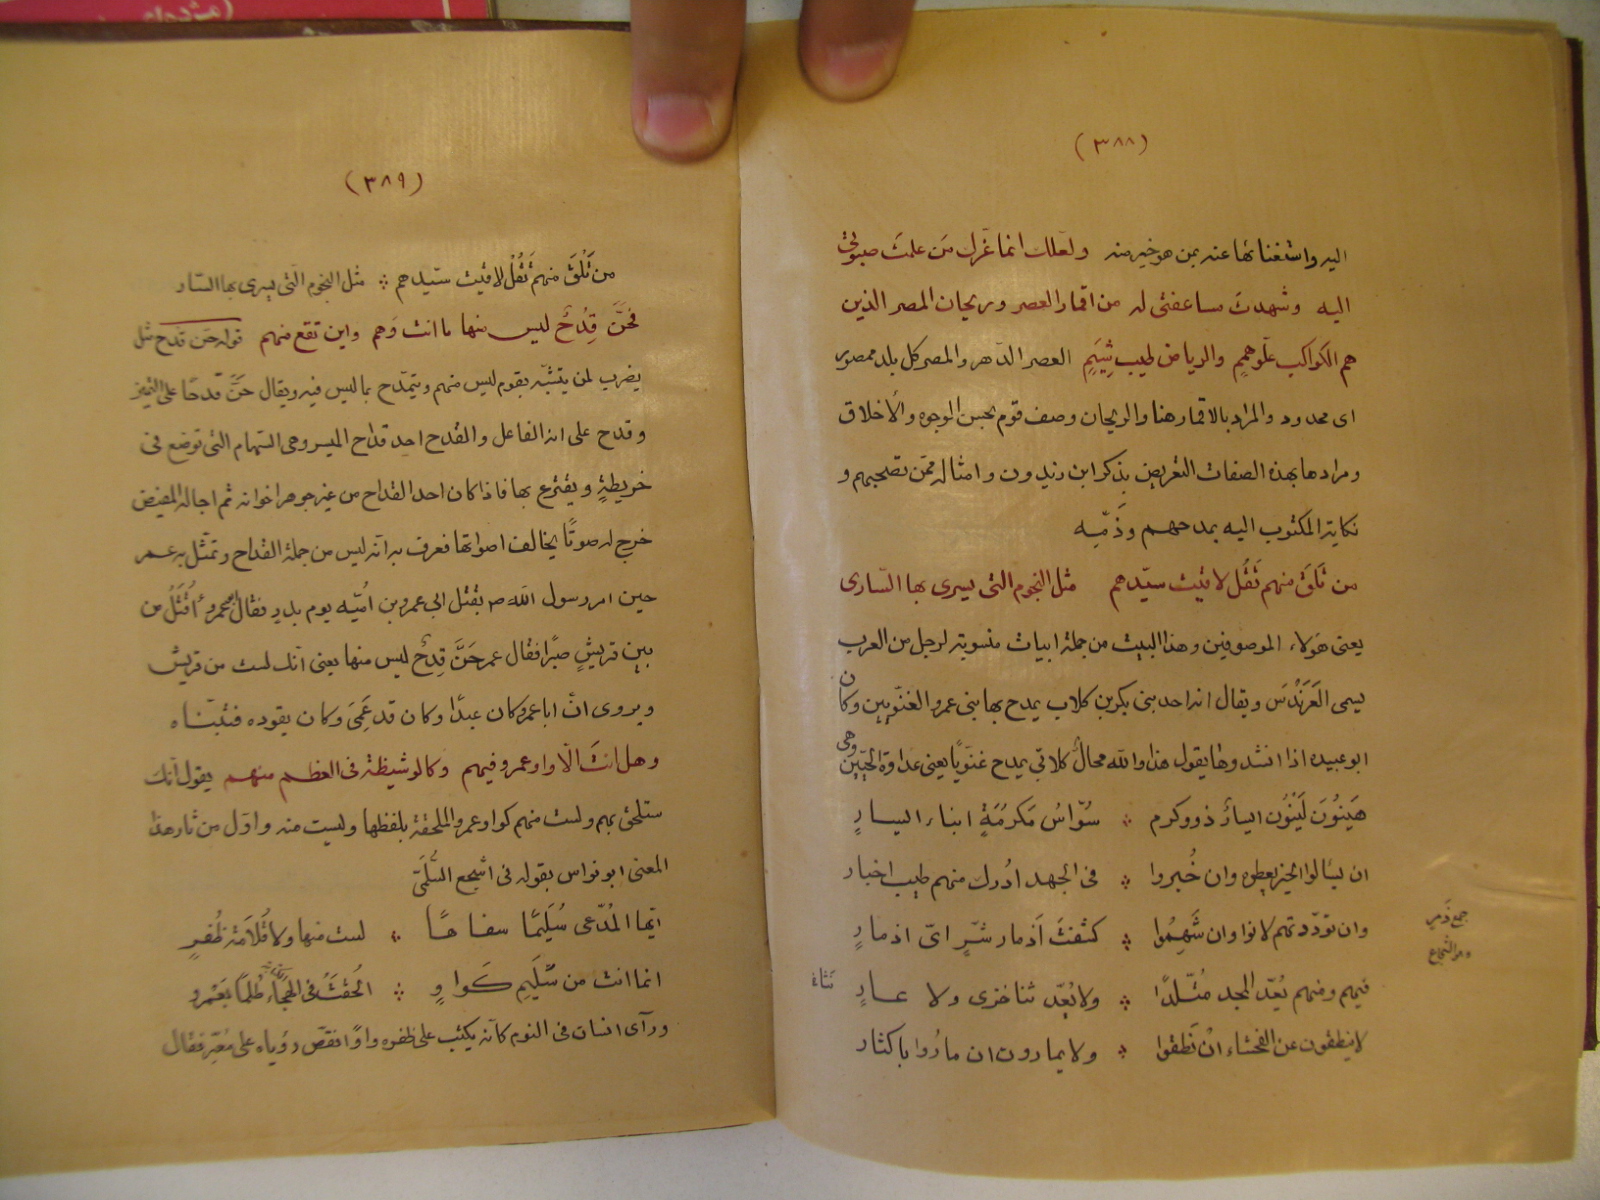 (٣٨٨)
اليه واستغنائها عنه بمن هو خير منه ولعلك انما غرك من علمت صبوتى
اليه وشهدت مساعفتى له من اقمار العصر وريحان المصر الذين
هم الكواكب علوهمم والرياض طيب شيم العصر الدهر والمصر كل بلد ممصور
اى محدود والمراد بالاقمار هنا والريحان وصف قوم بحسن الوجوه والأخلاق
ومرادها بهذه الصفات التعريض بذكر ابن زيدون وامثاله ممن تصحبهم و
نكاية المكتوب اليه بمدحهم وذمّه
من تَلقَ منهم تَقُل لاقيت سيّدهم مثل النجوم التى يسرى بها السّارى
يعنى هولاء الموصوفين وهذا البيت من جملة ابيات منسوبة لرجل من العرب
يسمى العَرَندَس ويقال انه احد بنى بكر بن كلاب يمدح بها بنى عمرو الغنويين وكان
ابو عبيده اذا انشدوها يقول هذا والله محال كلابى يمدح غنويًا يعنى عداوة الحيّين وهى
هَينُونَ لَينُون ايسار ذوو كرم ∴ سُوّاسُ مَكرُمَةٍ ابناء ايسارِ
ان يسألوا الخير يعطوه وان خُبروا ∴ فى الجهد ادُرك منهم طيب اخبار
وان تودّدتهم لانوا وان شَهِمُوا ∴ كشفتَ اَذمار شرٍّ اىّ اذمارٍ
جمع ذمر
وهو الشجاع
فيهم ومنهم يُعدّ المجد متّلدًا ∴ ولا يُعدّ نثا خزى ولا عارِ
لا ينطقون عن الفحشاء انْ نَطقوا ∴ ولا يمارون ان ماروا باكثار
(٣٨٩)
من تَلْقَ منهم تَقُلْ لاقيت سيّدهم ∴ مثل النجوم التى يسرى بها السّار
فحَنَّ قِدْحٌ ليس منها ما انت وَهم واين تقع منهم قوله حن قدح مثل
يضرب لمن يتشبّه بقوم ليس منهم ويتمدّح بما ليس فيه ويقال حَنَّ قدحًا على التميز
وقدح على انه الفاعل والقدح احد قداح الميسر وهى السّهام التى توضع فى
خريطةٍ ويقترع بها فاذا كان احد القداح من غير جوهر اخوانه ثم اجاله المفيض
خرج له صوتًا يخالف اصواتها فعرف به انه ليس من جملة القداح وتمثّل به عمر
حين امر رسول الله ص بقتل ابى عمرو بن اميّه يوم بدرٍ فقال ابو عمرو أُقتَلُ من
بين قريشٍ صبرًا فقال عمر حَنَّ قِدحٌ ليس منها يعنى انّك لست من قريش
ويروى انّ ابا عمرو كان عبدًا وكان قد عَمِىَ وكان يقوده فتبنّاه
وهل انتَ الّا واو عمرو فيهم وكالوشيظة فى العظم منهم يقول انّك
ستلحق بهم ولست منهم كواو عمرو الملحقة بلفظها وليست منه واوّل من ثار هذا
المعنى ابو نواس بقوله فى أشجع السُّلَمىّ
ايّها المُدّعى سُلَيمًا سفاهًا ∴ لست منها ولا قُلامَة ظُفرٍ
انما انت من سُلَيمٍ كَواوٍ ∴ اُلحقَتْ فى الهجاء ظُلمًا بعَمرو
ورآى انسان فى النوم كانّه يكتب على ظفره واوًا فقصّ رؤياه على معبّر فقال